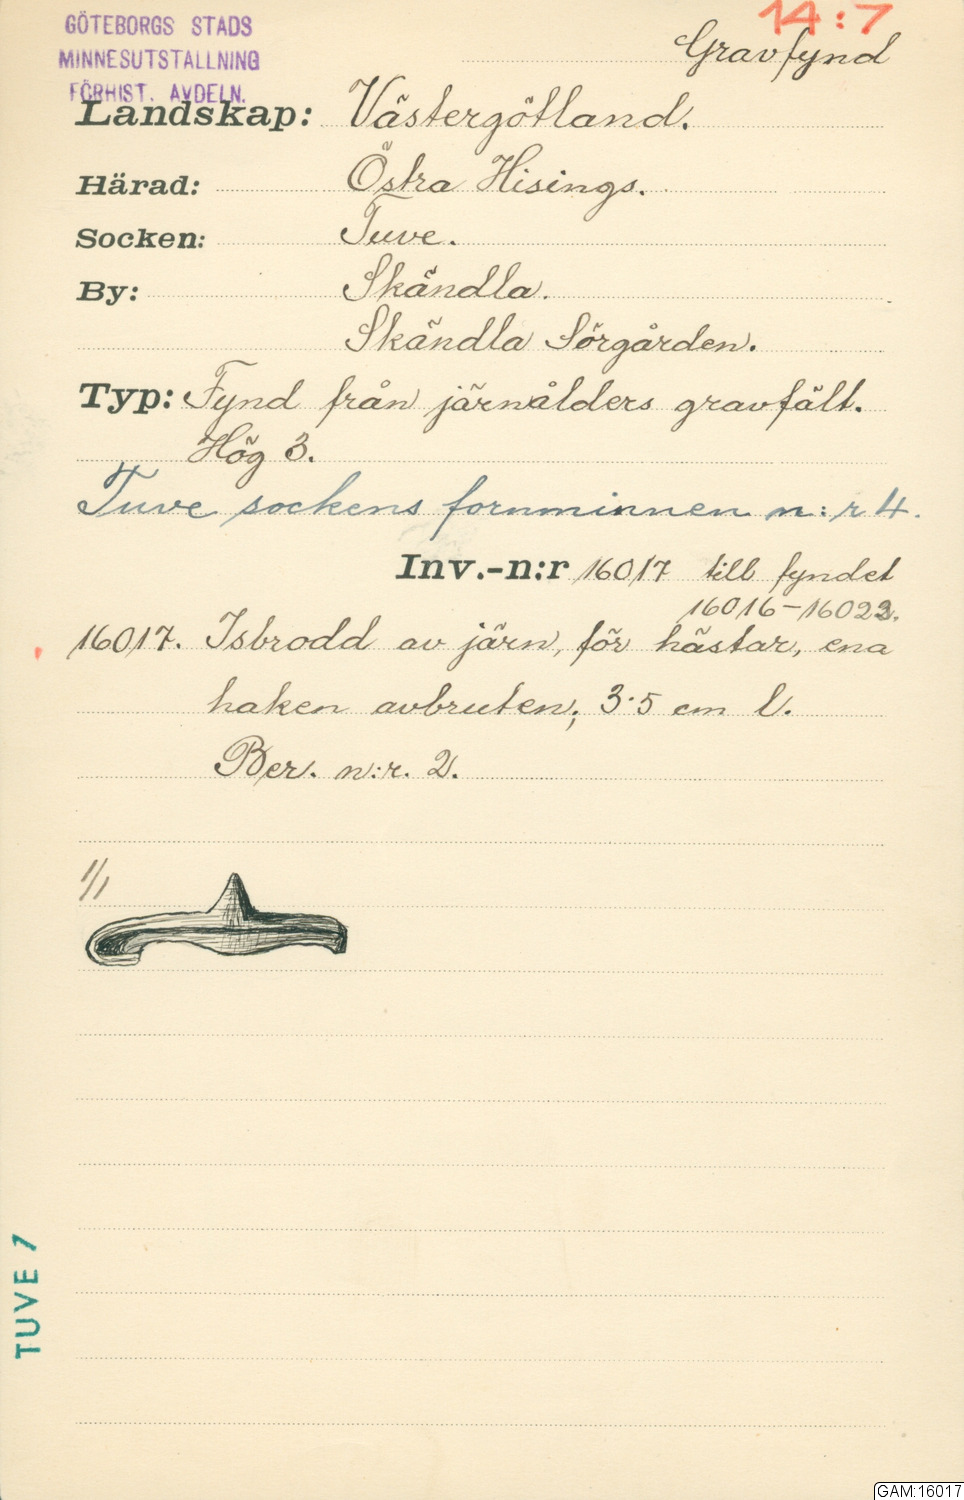 14:7
GÖTEBORGS STADS
MINNESUTSTALLNING
FÖRHIST. AVDELN.
Gravfynd
Landskap: Västergötland.
Härad: Östra Hisings.
Socken: Tuve.
By: Skändla.
Skändla Sörgården.
Typ: Fynd från järnålders gravfält.
Hög 3.
Tuve sockens fornminnen n:r 4.
Inv.-n:r 16017 till fyndet
16016-16022.
16017. Isbrodd av järn, för hästar, ena
haken avbruten; 3.5 cm l.
Ber. n:r. 2.
1/1
TUVE 1
GAM:16017